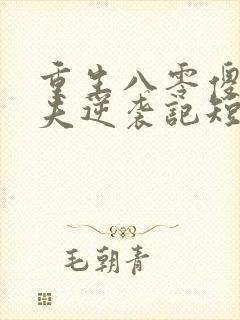 重生八零傻
夫逆袭记短
毛朝青